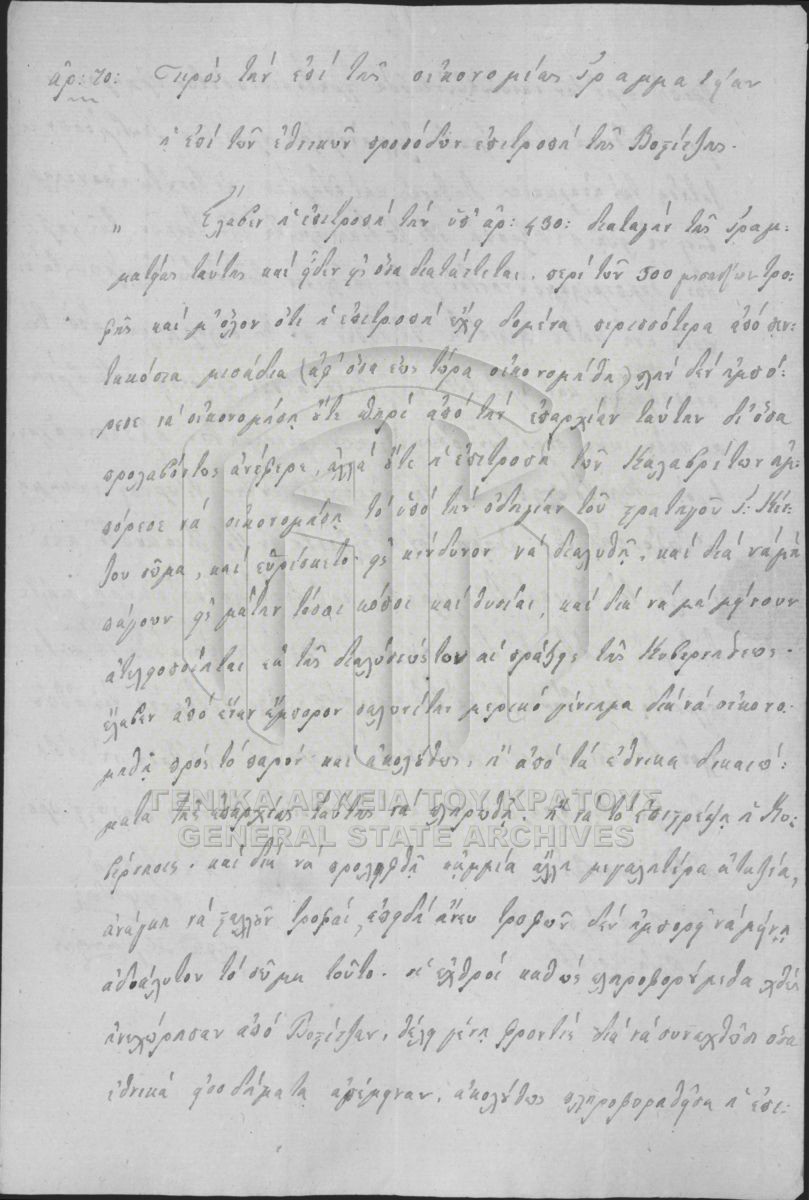 ἀρ: 70: Πρὸς τὴν ἐπὶ τῆς οἰκονομίας Γραμματείαν
ἡ ἐπὶ τῶν ἐθνικῶν προσόδων ἐπιτροπὴ τῆς Βοστίτζης.
„ Ἔλαβεν ἡ ἐπιτροπὴ τὴν ὑπ' ἀρ: 430: διαταγὴν τῆς Γραμ:
ματείας ταύτης καὶ εἶδεν εἰς ὅσα διατάττεται, περὶ τῶν 500 τρο:
φῆς καὶ μ' ὅλον ὅτι ἡ ἐπιτροπὴ ἔχει δομένα περισσότερα ἀπὸ πεν:
τακόσια μισάδια (ἀφ' ὅσα ἕως τώρα οἰκονομήθη) πλὴν δὲν ἠμπό:
ρεσε νὰ οἰκονομήσῃ οὔτε ἀπὸ τὴν ἐπαρχίαν ταύτην δι' ὅσα
προλαβόντως ἀνέφερε, ἀλλὰ οὔτε ἡ ἐπιτροπὴ τῶν Καλαβρίτων ἠμ:
πόρεσε νὰ οἰκονομήσῃ τὸ ὑπὸ τὴν ὁδηγίαν τοῦ στρατηγοῦ Γ:
του σῶμα, καὶ εὑρίσκετο εἰς κίνδυνον νὰ διαλυθῇ, καὶ διὰ νὰ μὴ
πάγουν εἰς μάτην τόσοι κόποι καὶ θυσίαι, καὶ διὰ νὰ μὴ μείνουν
ἀτελιοποίηται ἐκ τῆς διαλύσεώς των αἱ πράξεις τῆς Κυβερνήσεως.
ἔλαβεν ἀπὸ ἕναν ἔμπορον σαλωνίτην μερικὸ γέννημα διὰ νὰ οἰκονο:
μηθῇ πρὸς τὸ παρὸν καὶ ἀκολούθως, ἢ ἀπὸ τὰ ἐθνικὰ δικαιώ:
ματα τῆς ἐπαρχίας ταύτης νὰ πληρωθῇ, ἢ νὰ τὸ ἐπιστρέψῃ ἡ Κυ:
βέρνησις. καὶ διὰ νὰ προληφθῇ καμμία ἄλλη μεγαλητέρα ἀταξία,
ἀνάγκη νὰ σταλλοῦν τροφαί, ἐπειδὴ ἄνευ τροφῶν δὲν ἠμπορεῖ νὰ μείνῃ
ἀδιάλυτον τὸ σῶμα τοῦτο. οἱ ἐχθροὶ καθὼς πληροφορούμεθα χθὲς
ἀνεχώρησαν ἀπὸ Βοστίτζαν, θέλει γένῃ φροντὶς διὰ νὰ συναχθῶσι ὅσα
ἐθνικὰ εἰσοδήματα ἀπέμειναν, ἀκολούθως πληροφορηθεῖσα ἡ ἐπι:
ΓΕΝΙΚΑ ΑΡΧΕΙΑ ΤΟΥ ΚΡΑΤΟΥΣ
GENERAL STATE ARCHIVES